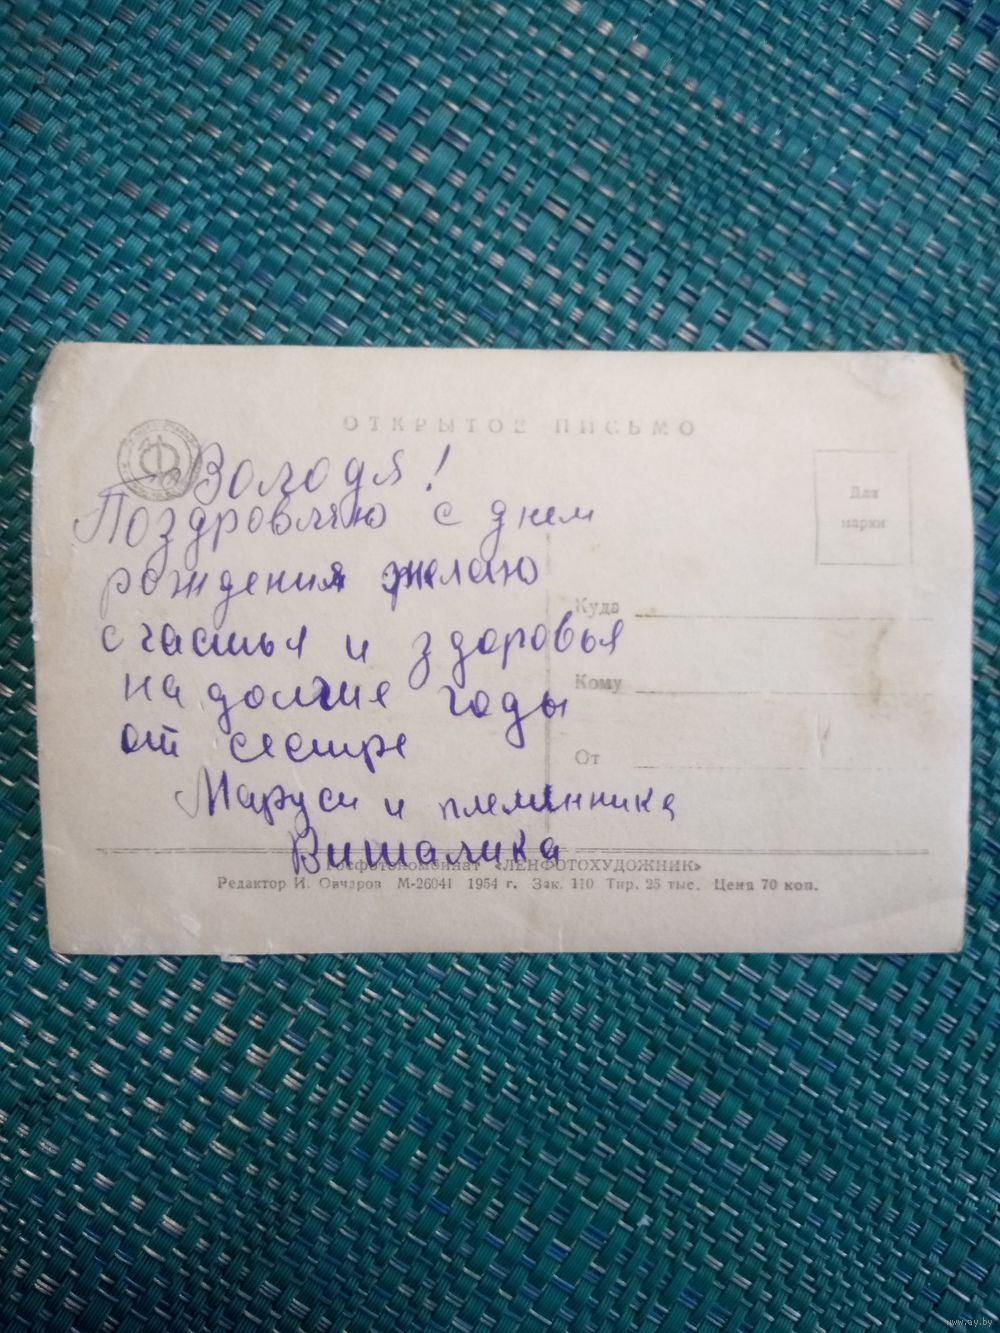 ОТКРЫТОЕ ПИСЬМО
Володя!
Поздровляю с днем
рождения желаю
счастья и здоровья
на долгие годы
от сестре
Маруси и племинника
Виталика
Для
марки
Куда
Кому
От
Росфотокомбинат «ЛЕНФОТОХУДОЖНИК»
Редактор И. Овчаров М-26041 1954 г. Зак. 110 Тир. 25 тыс. Цена 70 коп.
www.ay.by